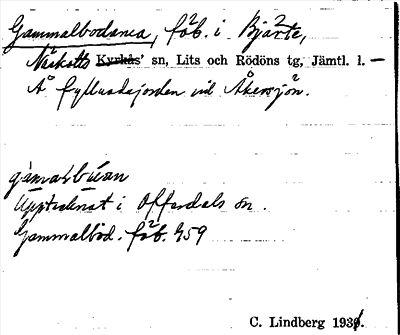 Gammalbodarna, fäb. i Bjärte,
Näskotts Kyrkås' sn, Lits och Rödöns tg, Jämtl. l. —
Å fyllnadsjorden vid Åkersjön.
Upptecknat i Offerdals sn.
Gammalbod. fäb. 959
C. Lindberg 1934.